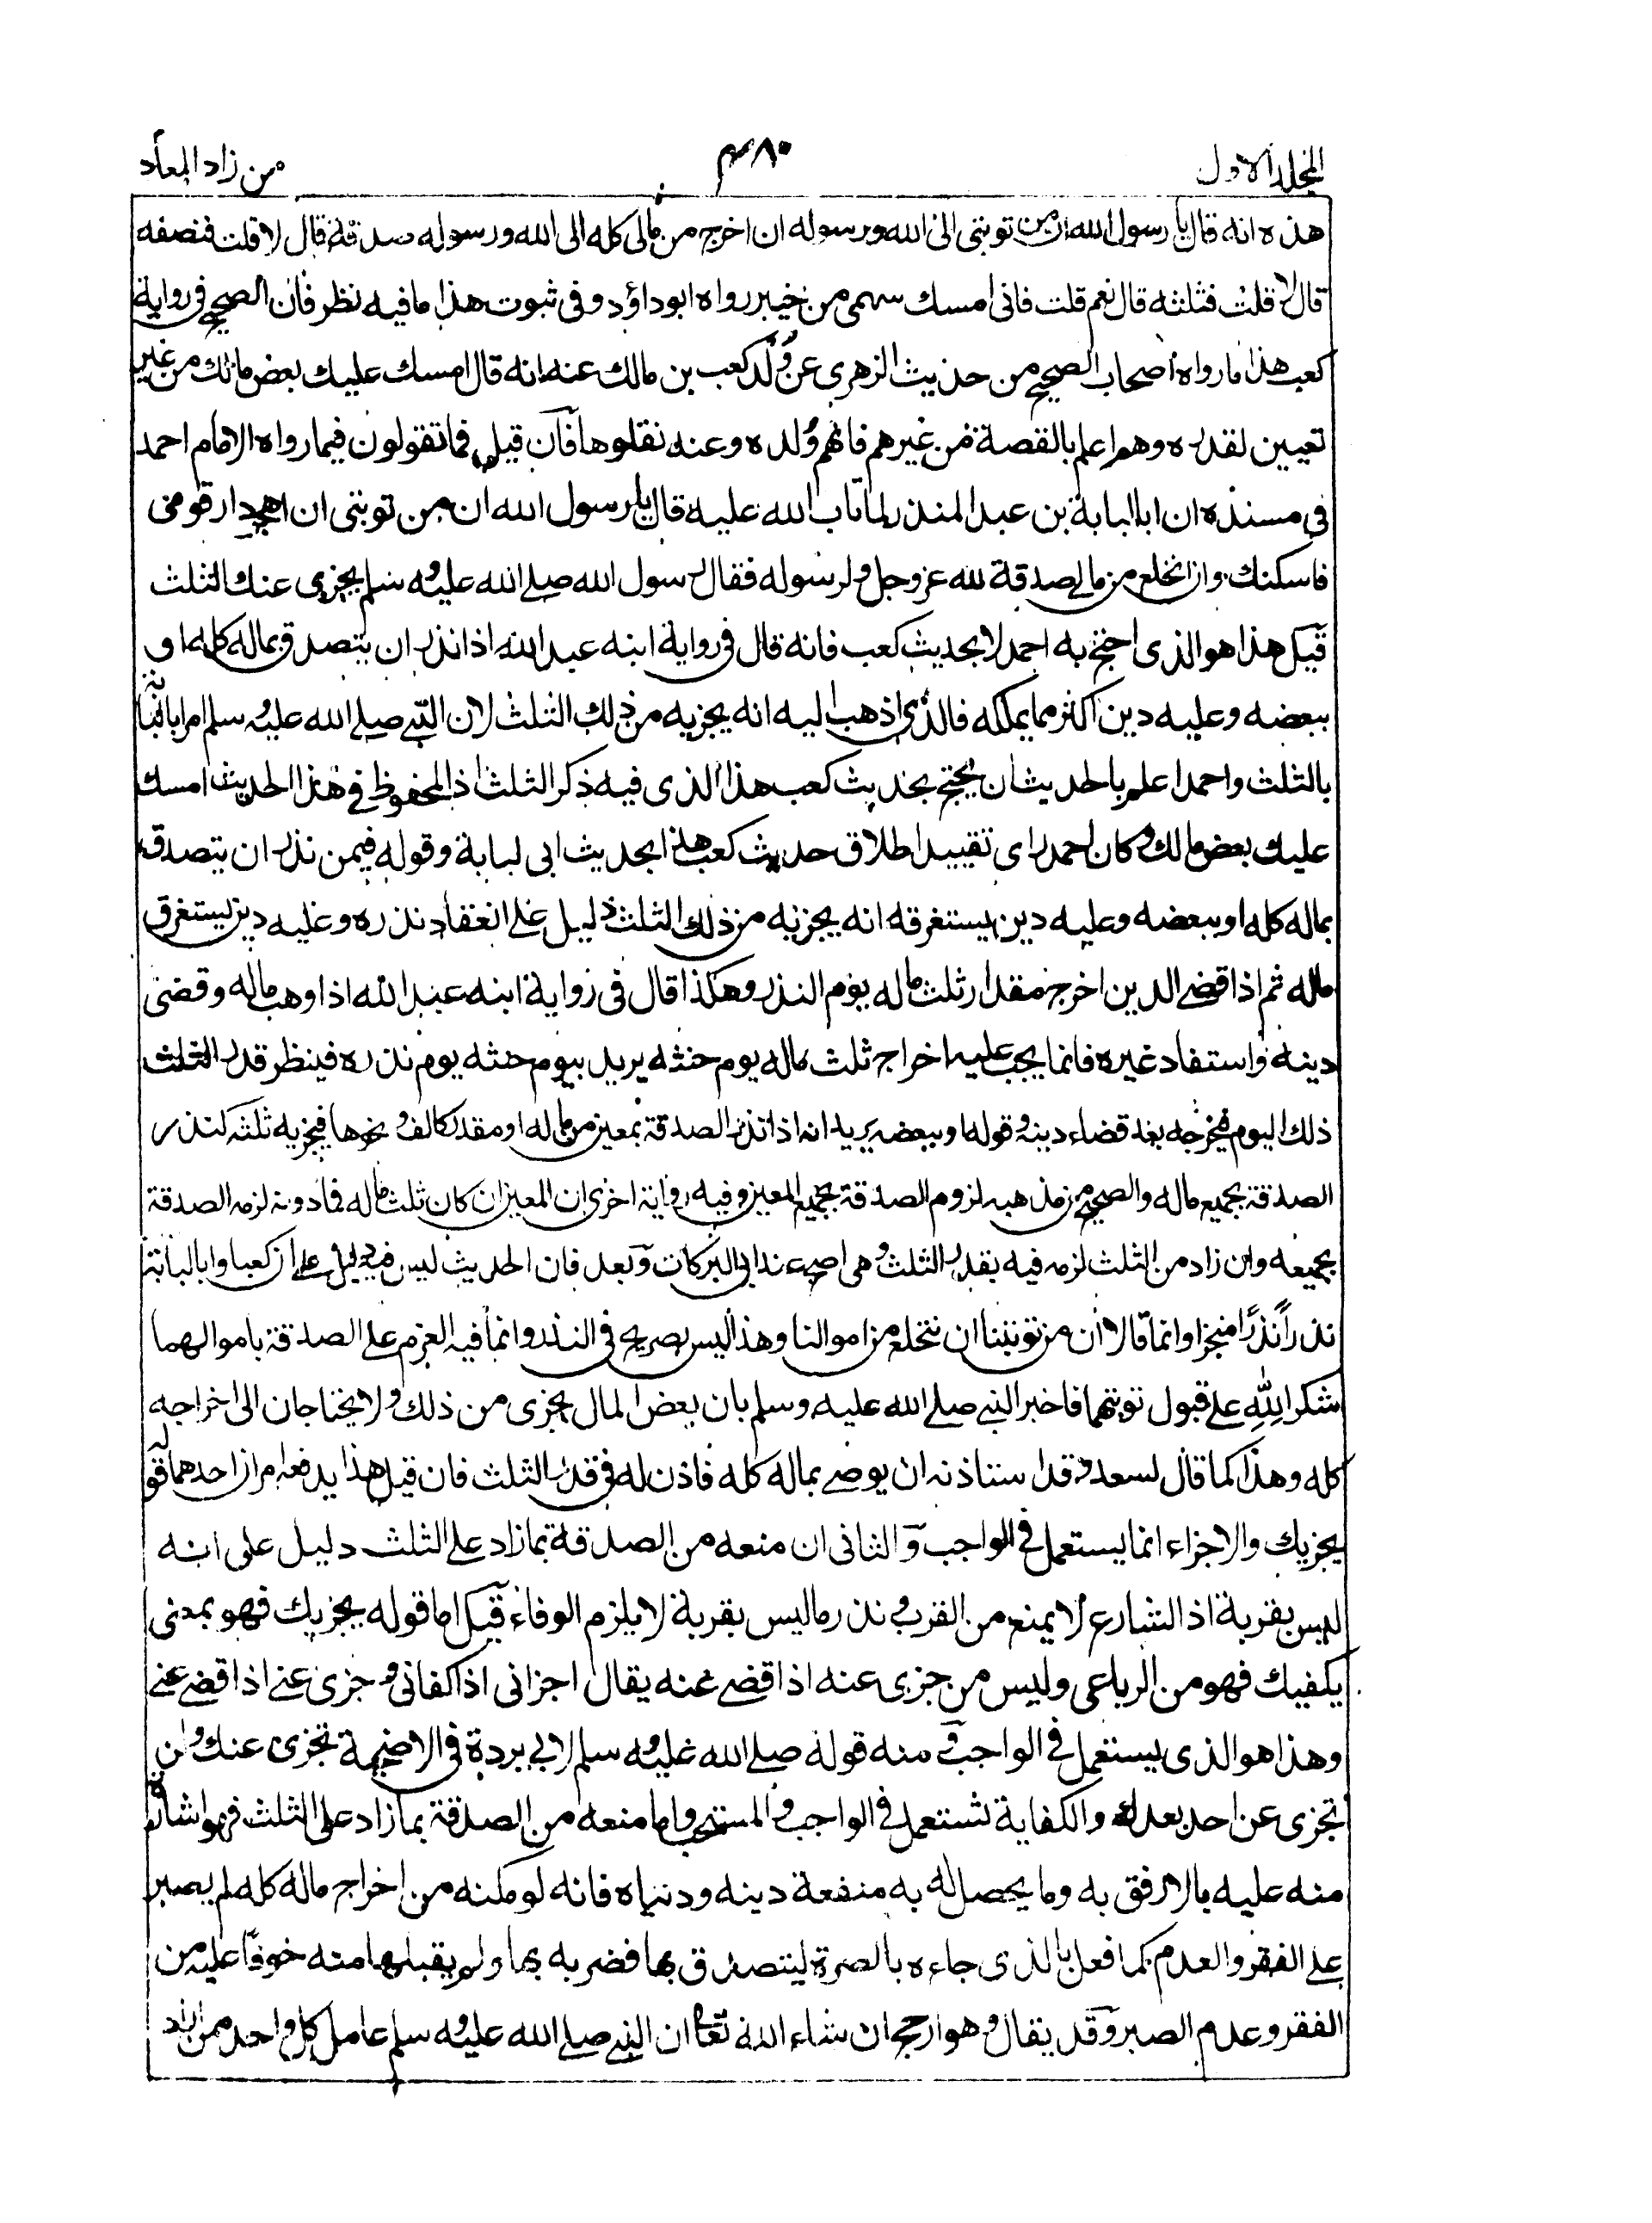 المجلد الاول ۴۸۰ من زاد المعاد
هذه انه قال يا رسول الله ان من توبتى الى الله ورسوله ان اخرج من مالى كله الى الله ورسوله صدقة قال لا قلت فنصفه
قال لا قلت فثلثه قال نعم قلت فانى امسك سهمى من خيبر رواه ابوداؤد وفى ثبوت هذا ما فيه نظر فان الصحيح فى رواية
كعب هذا ما رواه اصحاب الصحيح من حديث الزهرى عن ولد كعب بن مالك عنه انه قال امسك عليك بعض مالك من غير
تعيين لقدره وهم اعلم بالقصة من غيرهم فانهم ولده وعنه نقلوها فان قيل فما تقولون فيما رواه الامام احمد
فى مسنده ان ابا لبابة بن عبد المنذر لما تاب الله عليه قال يا رسول الله ان من توبتى ان اهجر دار قومى
فاسكنك وان انخلع من مالى صدقة لله عز وجل ولرسوله فقال رسول الله صلى الله عليه وسلم يجزى عنك الثلث
قيل هذا هو الذى احتج به احمد لا بحديث كعب فانه قال فى رواية ابنه عبد الله اذا نذر ان يتصدق بماله كله او
ببعضه وعليه دين اكثر مما يملكه فالذى اذهب اليه انه يجزيه من ذلك الثلث لان النبى صلى الله عليه وسلم امر ابا لبابة
بالثلث واحمد اعلم بالحديث ان يحتج بحديث كعب هذا الذى فيه ذكر الثلث اذ المحفوظ فى هذا الحديث امسك
عليك بعض مالك وكان احمد راى تقييد اطلاق حديث كعب هذا بحديث ابى لبابة وقوله فيمن نذر ان يتصدق
بماله كله او ببعضه وعليه دين يستغرقه انه يجزيه من ذلك الثلث دليل على انعقاد نذره وعليه دين يستغرق
ماله ثم اذا قضى الدين اخرج مقدار ثلث ماله يوم النذر وهكذا قال فى رواية ابنه عبد الله اذا وهب ماله وقضى
دينه واستفاد غيره فانما يجب عليه اخراج ثلث ماله يوم حنثه يريد بيوم حنثه يوم نذره فينظر قدر الثلث
ذلك اليوم فيخرجه بعد قضاء دينه وقوله او ببعضه يريد انه اذا نذر الصدقة بمعين من ماله او مقدر كالف ونحوها فيجزيه ثلثه كنذر
الصدقة بجميع ماله والصحيح من مذهبه لزوم الصدقة بجميع المعين وفيه رواية اخرى ان المعين ان كان ثلث ماله فما دونه لزمه الصدقة
بجميعه وان زاد من الثلث لزمه فيه بقدر الثلث وهى اصح عند ابى البركات وبعد فان الحديث ليس فيه دليل على ان كعبا وابا لبابة
نذرا نذرًا منجزا وانما قالا ان من توبتنا ان ننخلع من اموالنا وهذا ليس بصريح فى النذر وانما فيه العزم على الصدقة باموالهما
شكرا لله على قبول توبتهما فاخبر النبى صلى الله عليه وسلم بان بعض المال يجزى من ذلك ولا يحتاجان الى اخراجه
كله وهذا كما قال لسعد وقد استاذنه ان يوصى بماله كله فاذن له فى قدر الثلث فان قيل هذا يدفعه امران احدهما قوله
يجزيك والاجزاء انما يستعمل فى الواجب والثانى ان منعه من الصدقة بما زاد على الثلث دليل على انه
ليس بقربة اذ الشارع لا يمنع من القرب ونذر ما ليس بقربة لا يلزم الوفاء قيل اما قوله يجزيك فهو بمعنى
يكفيك فهو من الرباعى وليس من جزى عنه اذا قضى عنه يقال اجزانى اذا كفانى وجزى عنى اذا قضى عنى
وهذا هو الذى يستعمل فى الواجب ومنه قوله صلى الله عليه وسلم لابى بردة فى الاضحية تجزى عنك ولن
تجزى عن احد بعدك والكفاية تستعمل فى الواجب والمستحب واما منعه من الصدقة بما زاد على الثلث فهو اشارة
منه عليه بالارفق به وما يحصل له به منفعة دينه ودنياه فانه لو مكنه من اخراج ماله كله لم يصبر
على الفقر والعدم كما فعل بالذى جاءه بالصرة ليتصدق بها فضربه بها ولم يقبلها منه خوفا عليه من
الفقر وعدم الصبر وقد يقال وهو ارجح ان شاء الله تعالى ان النبى صلى الله عليه وسلم عامل كل واحد ممن اراد